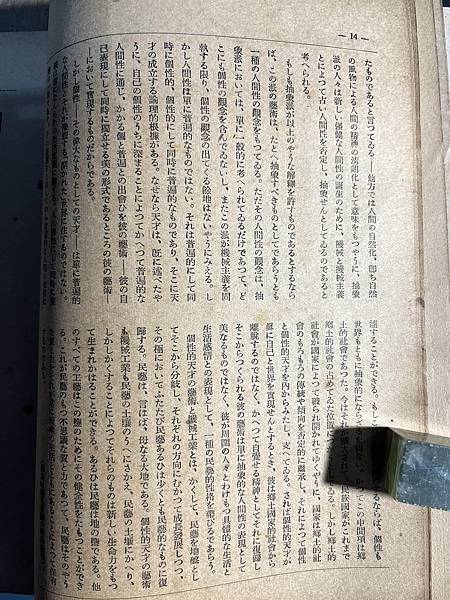 — 14 —
たものであると言つてゐる——他方では人間の自然化、卽ち自然
の風物による人間の精神の清朗化として意味をもつやうに、抽象
派の人々は新しい強健な人間性の誕生のために、機械と機械主義
とによつて古い人間性を否定し、抽象せんとしてゐるのであると
考へられる。
もしも抽象派が以上のやうな解釋を許すものであるとするなら
ば、この派の藝術は、たとへ抽象すべきものとしてであらうとも
一種の人間性の觀念をもつてゐる。ただその人間性の觀念は、抽
象派においては、單に一般的に考へられてゐるだけであつて、ど
こにも個性の觀念を含んでゐないし、またこの派が機械主義を固
執する限り、個性の觀念の出てくる餘地はないやうにみえる。し
かし人間性は單に普遍的なものではない。それは普遍的にして同
時に個性的、個性的にして同時に普遍的なものであり、そこに天
才の成立する論理的根據がある。なぜなら天才は、旣に述べたや
うに、自己の個性のうちに深まることによつてかへつて普遍的な
人間性に通じ、かかる個と普遍との出會ひを彼の藝術——彼の自
己表現にして同時に獨立せる美の形成であるところの彼の藝術
——において實現するものだからである。
しかし個性——この偉大なものとしての天才——は單に普遍的
な人間性とそれが推進する開かれた世界に住するのではない。
達することができる。もしこ
世界もともに抽象的になら
土的社會であつた。今はそれが
鄕土的社會の占めてゐた位置に
社會が國家によつて破られ開かれてゆくやうに、國家は鄕土的社
會のもろもろの傳統や傾向を否定的に繼承し、それによつて個性
と個性的天才を內からみたし、支へてゐる。されば個性的天才が
眞に自己と世界を實現せんとするとき、彼は鄕土國家的社會から
離脫するのではなく、かへつて自覺せる精神としてそれに復歸し
そこからつくられる彼の藝術は單に抽象的な人間性の表現として
美なるものではなく、彼が周圍の人々とわけもつ具體的な生活と
生活感情との表現として、一種の民藝的性格を帶びるであらう。
個性的天才の藝術と機械工業とは、かくして、民藝を地盤とし
てそこから分岐し、それぞれの方向にむかつて成長發展しつつ、
その極においてふたたび民藝あるひは少くとも民藝的なものに復
歸する。民藝は、言はば、母なる大地である。個性的天才の藝術
も機械工業も民藝の土壤のうへにさかえ、民藝の土壤にかへり、
しかしかくすることによつてそれらのものは新しい生命力をもつ
て生まれかはることができる。あるひは民藝は地の鹽である。他
のすべての工藝はこの鹽のためにその健全性をたもつことができ
る。これが民藝のもつ不思議な實と力であつて、民藝はそのやう